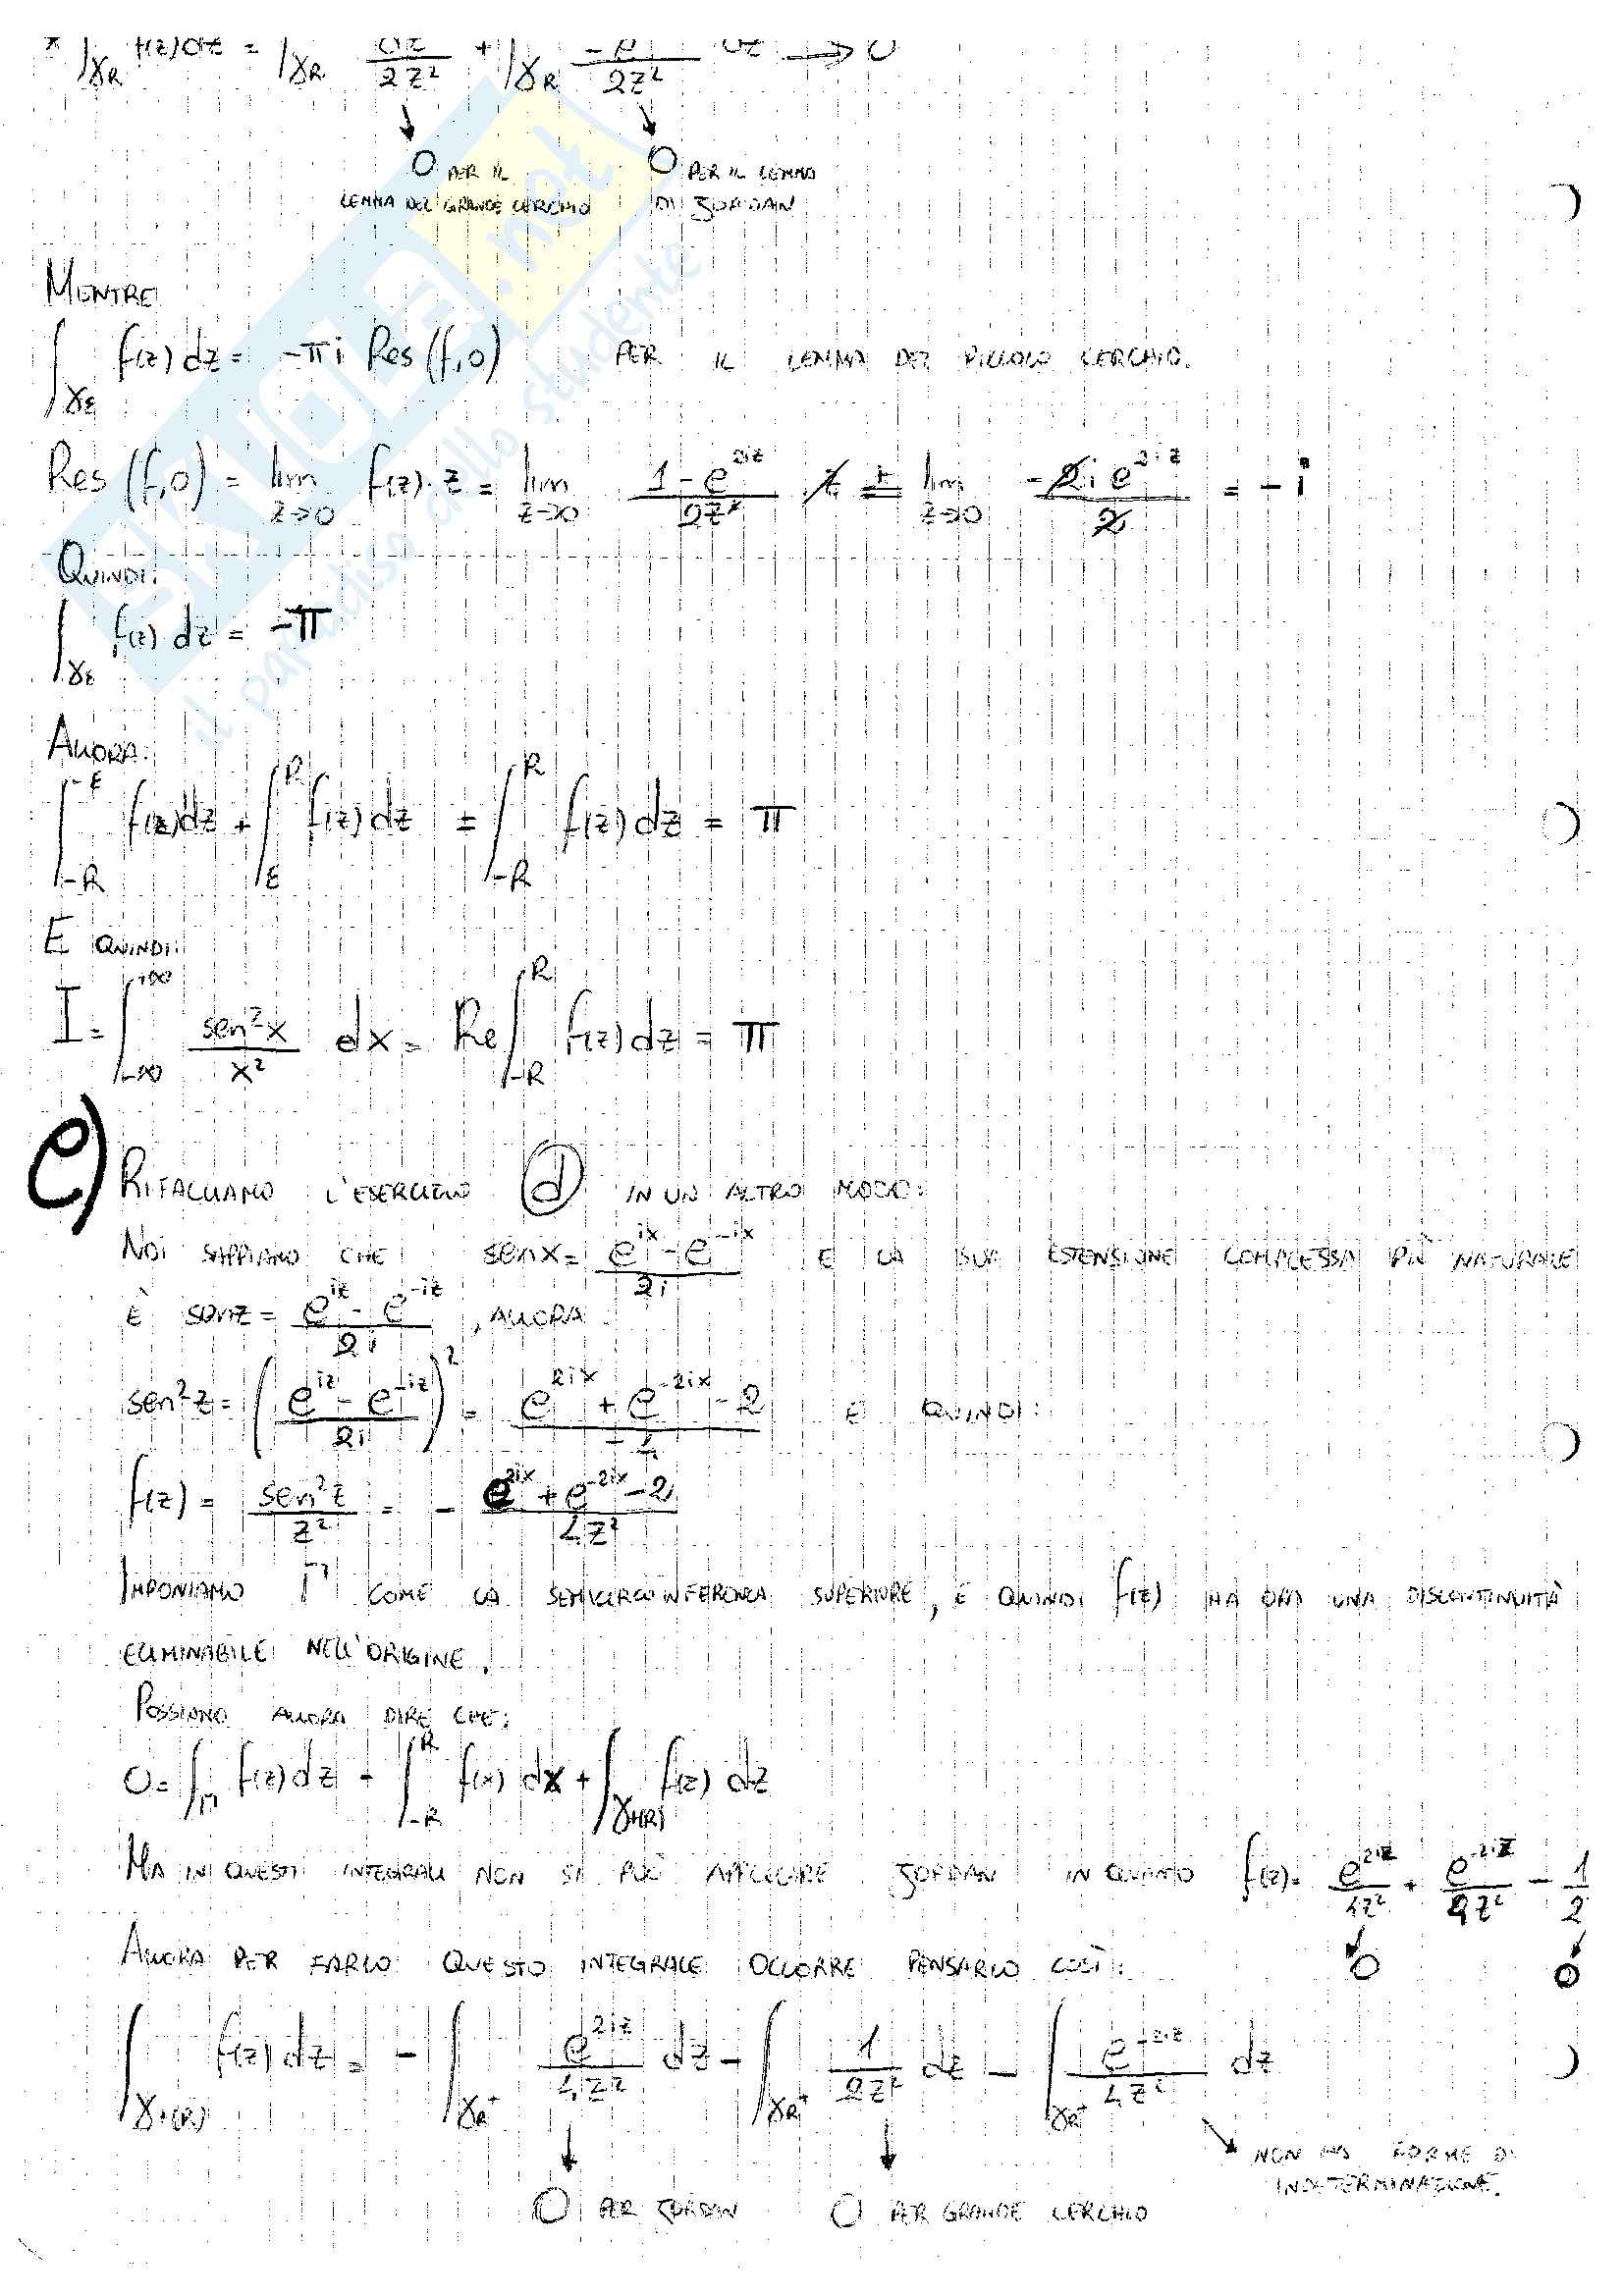 * ∫_γR f(z)dz = ∫_γR dz/2z² + ∫_γR -e/2z² dz → 0
↓ ↓
0 PER IL 0 PER IL LEMMA
LEMMA DEL GRANDE CERCHIO DI JORDAN
MENTRE
∫_γε f(z)dz = -πi Res(f,0) PER IL LEMMA DEL PICCOLO CERCHIO.
Res(f,0) = lim_{z→0} f(z)·z = lim_{z→0} (1-e^{2iz})/2z² z = lim_{z→0} -2ie^{2iz}/2 = -i
QUINDI:
∫_γε f(z)dz = -π
ALLORA:
∫_{-R}^{-ε} f(z)dz + ∫_ε^R f(z)dz = ∫_{-R}^R f(z)dz = π
E QUINDI:
I = ∫_{-∞}^{+∞} sen²x/x² dx = Re ∫_{-R}^R f(z)dz = π
e) RIFACCIAMO L'ESERCIZIO d IN UN ALTRO MODO:
NOI SAPPIAMO CHE senx = (e^{ix}-e^{-ix})/2i E LA SUA ESTENSIONE COMPLESSA PIÙ NATURALE
È senz = (e^{iz}-e^{-iz})/2i, ALLORA
sen²z = ((e^{iz}-e^{-iz})/2i)² = (e^{2ix}+e^{-2ix}-2)/-4 E QUINDI:
f(z) = sen²z/z² = -(e^{2ix}+e^{-2ix}-2)/4z²
IMPONIAMO Γ COME LA SEMICIRCONFERENZA SUPERIORE, E QUINDI f(z) HA ORA UNA DISCONTINUITÀ
ELIMINABILE NELL'ORIGINE.
POSSIAMO ALLORA DIRE CHE:
0 = ∫_Γ f(z)dz = ∫_{-R}^R f(x)dx + ∫_γ+(R) f(z)dz
MA IN QUESTI INTEGRALI NON SI PUÒ APPLICARE JORDAN IN QUANTO f(z) = e^{2iz}/4z² + e^{-2iz}/4z² - 1/2
0 0
ALLORA PER FARLO QUESTO INTEGRALE OCCORRE PENSARLO COSÌ:
∫_γ+(R) f(z)dz = -∫_γR+ e^{2iz}/4z² dz - ∫_γR+ 1/2z² dz - ∫_γR+ e^{-2iz}/4z² dz
↓ ↓ NON HA FORME DI
INDETERMINAZIONE.
0 PER JORDAN 0 PER GRANDE CERCHIO
il paradiso dello studente